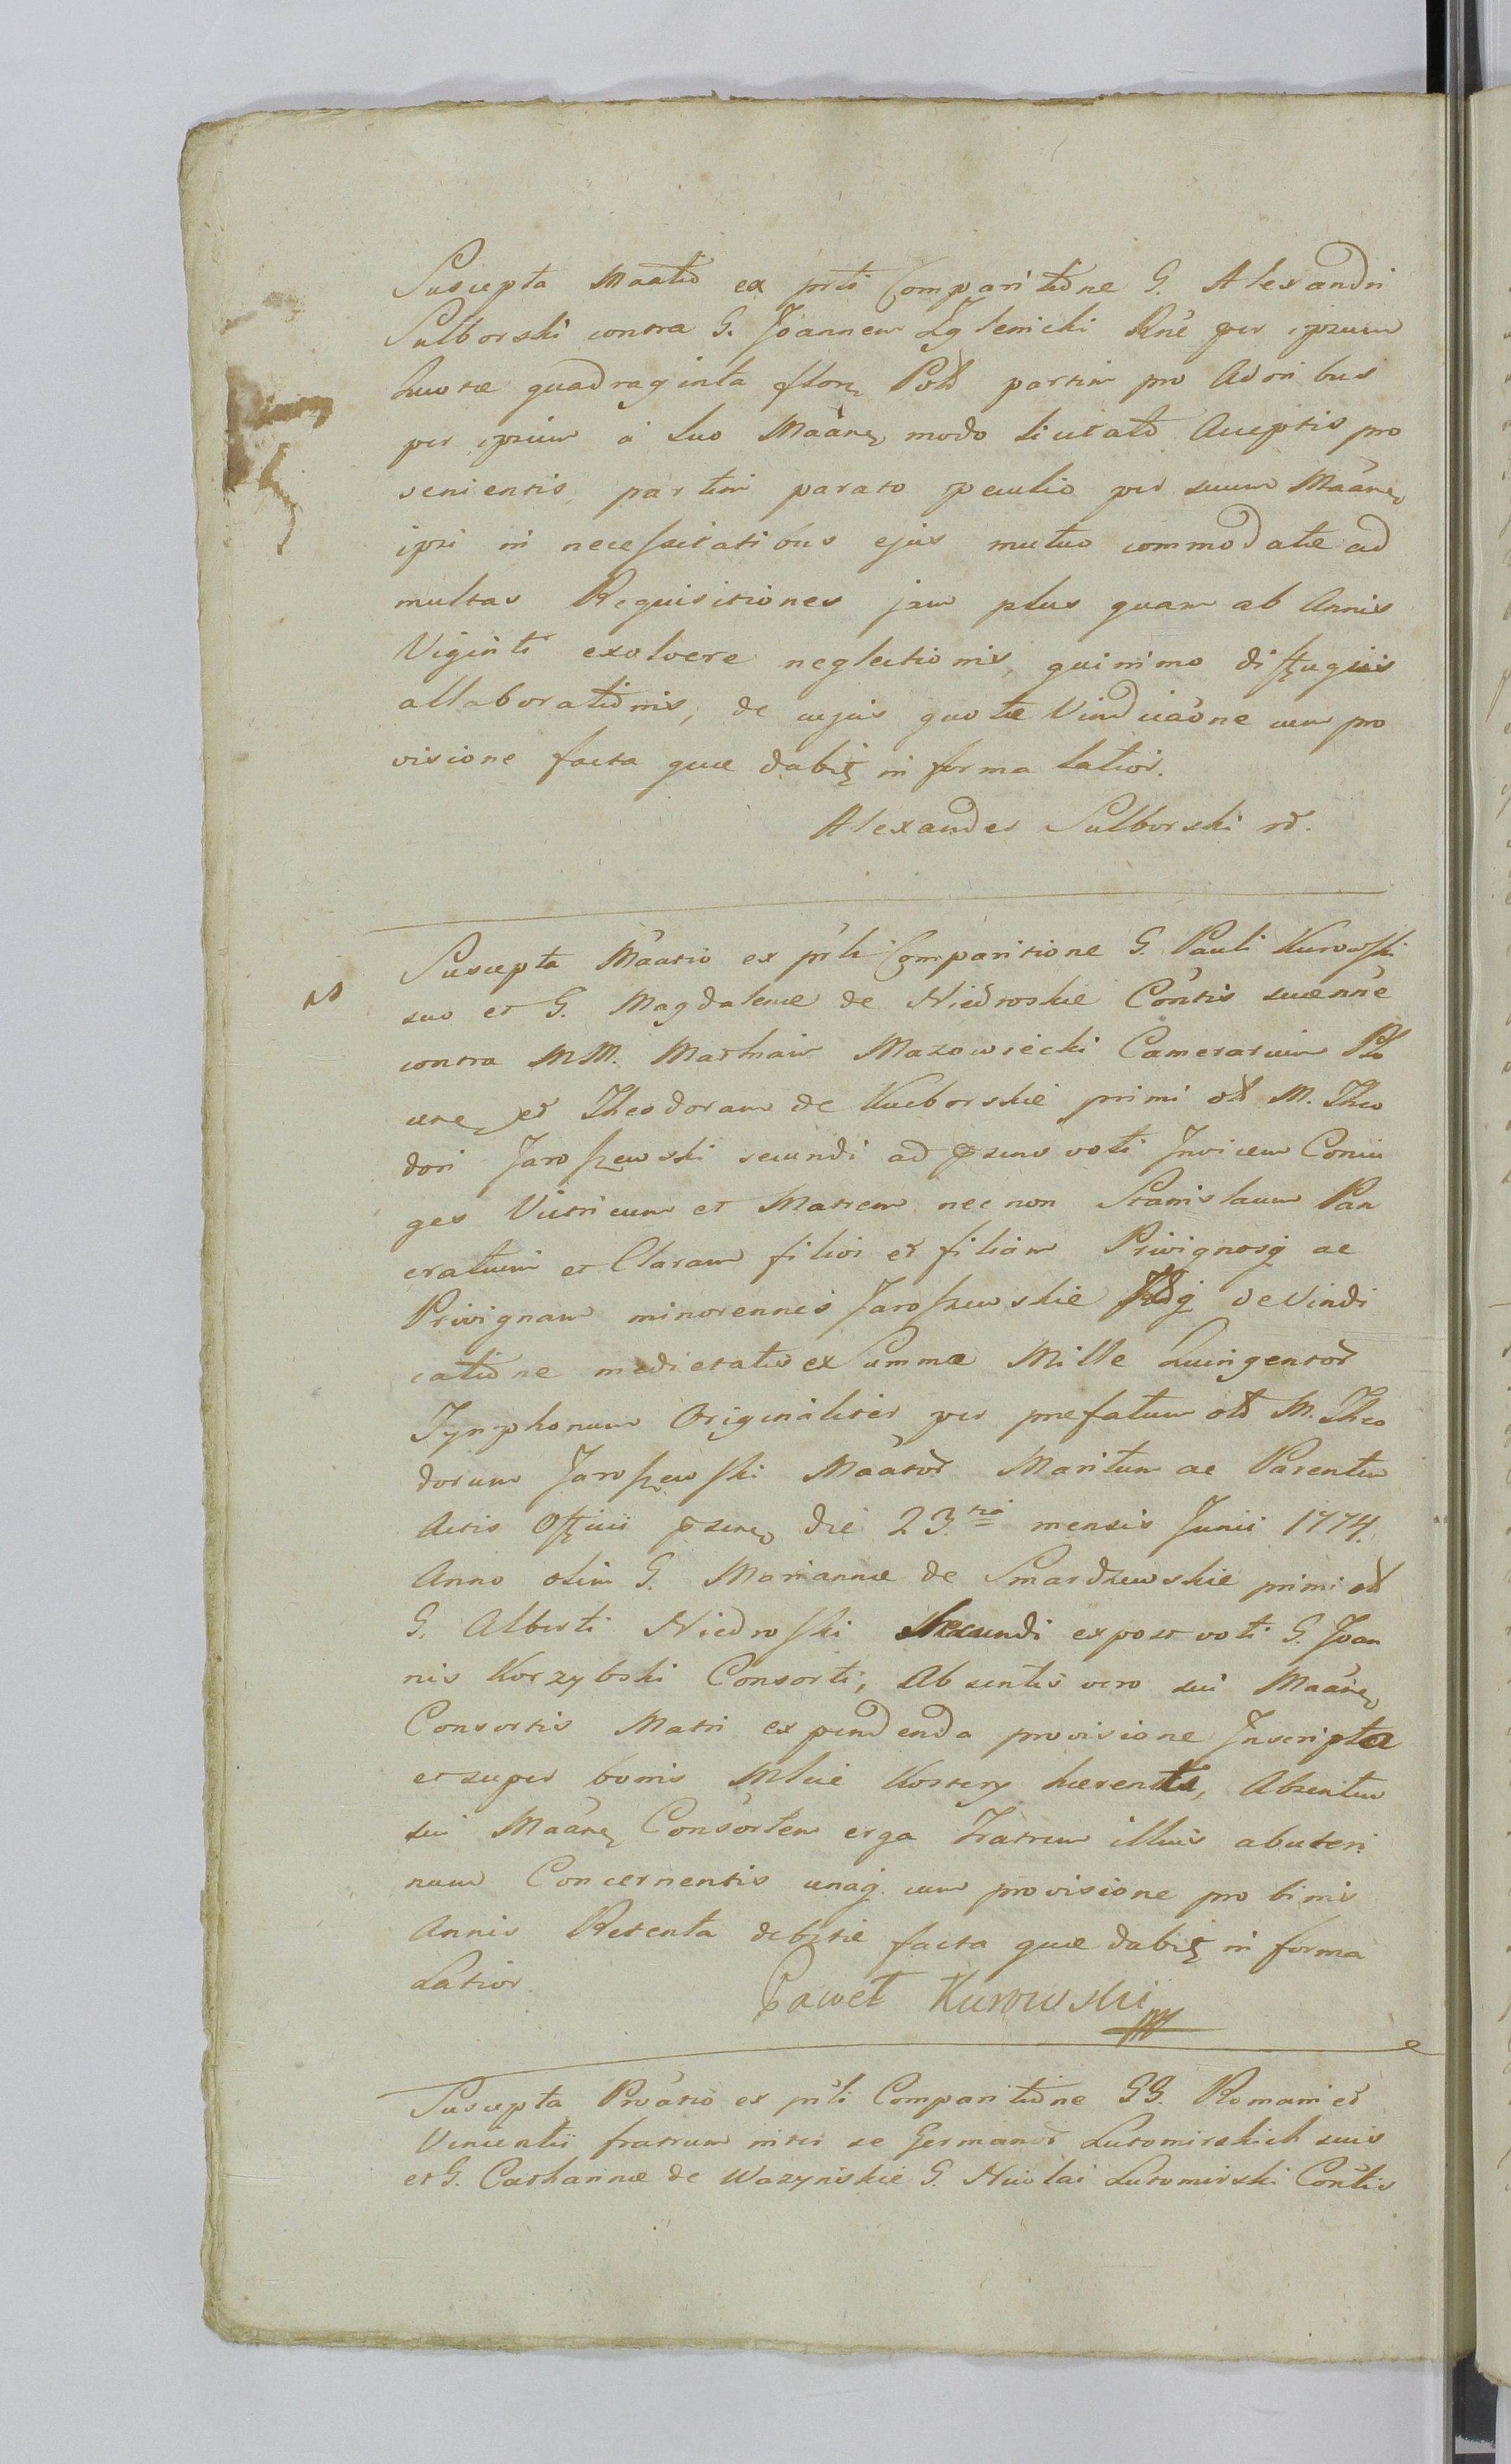 Suscepta Maatio ex prti Comparitione G. Alexandri
Sulborski contra G. Joannem Zglenicki Rne per ipsum
quotæ quadraginta floreꝫ Pol partim pro Adribus
per ipsum á suo Maáneꝫ modo licitato Acceptis pro
venientis, partim parato peculio per suum Maáneꝫ
ipsi in necessitatibus ejus mutuo commodatæ ad
multas Requisitiones jam plus quam ab Annis
Viginti exolvere neglectionis, quinimo diffugiis
allaborationis, de cujus quotæ Vindicaóne cum pro
visione facta quæ dabit in forma latior.
Alexander Sulborski
Suscepta Máatio ex prti Comparitione G. Pauli Kurowski
suo et G. Magdalenæ de Niedroskie Cóntis suæ nne
contra MM. Mathiam Mazowiecki Camerarium Plo
et Theodoram de Kucborskie primi ol M. Theo
dori Jaroszewski secundi ad psens voti Invicem Coniu
ges Vitricum et Matrem nec non Stanislaum Pan
cratium et Claram filios et filiam Privignosq ac
Privignam minorennes Jaroszewskie de Vindi
catione medietatis ex Summa Mille Quingentor
Tynphonum Originaliter per prefatum ol M. Theo
dorum Jaroszewski Máator Maritum ac Parentem
Actis Officii pseneꝫ die 23.tia mensis Junii 1774.
Anno olim G. Mariannæ de Smardzewskie primi ol
G. Alberti Niedroski Secundi expost voti G. Joan
nis Korzybski Consorti, Absentis vero sui Máaneꝫ
Consortis Matri ex pendenda provisione Inscripta
et super bonis Mlice Kostery hærentis, Absentem
sui Máaneꝫ Consortem erga Fratrem illius abuteri
num Concernentis unaq cum provisione pro binis
Annis Retenta debitæ facta quæ dabit in forma
Latior.
Paweł Kurowski
Suscepta Proátio ex prti Comparitione GG. Romani et
Vincentii fratrum inter se Germanor Lutomirskich suis
et G. Catharinæ de Wazynskie G. Nicolai Lutomirski Contis